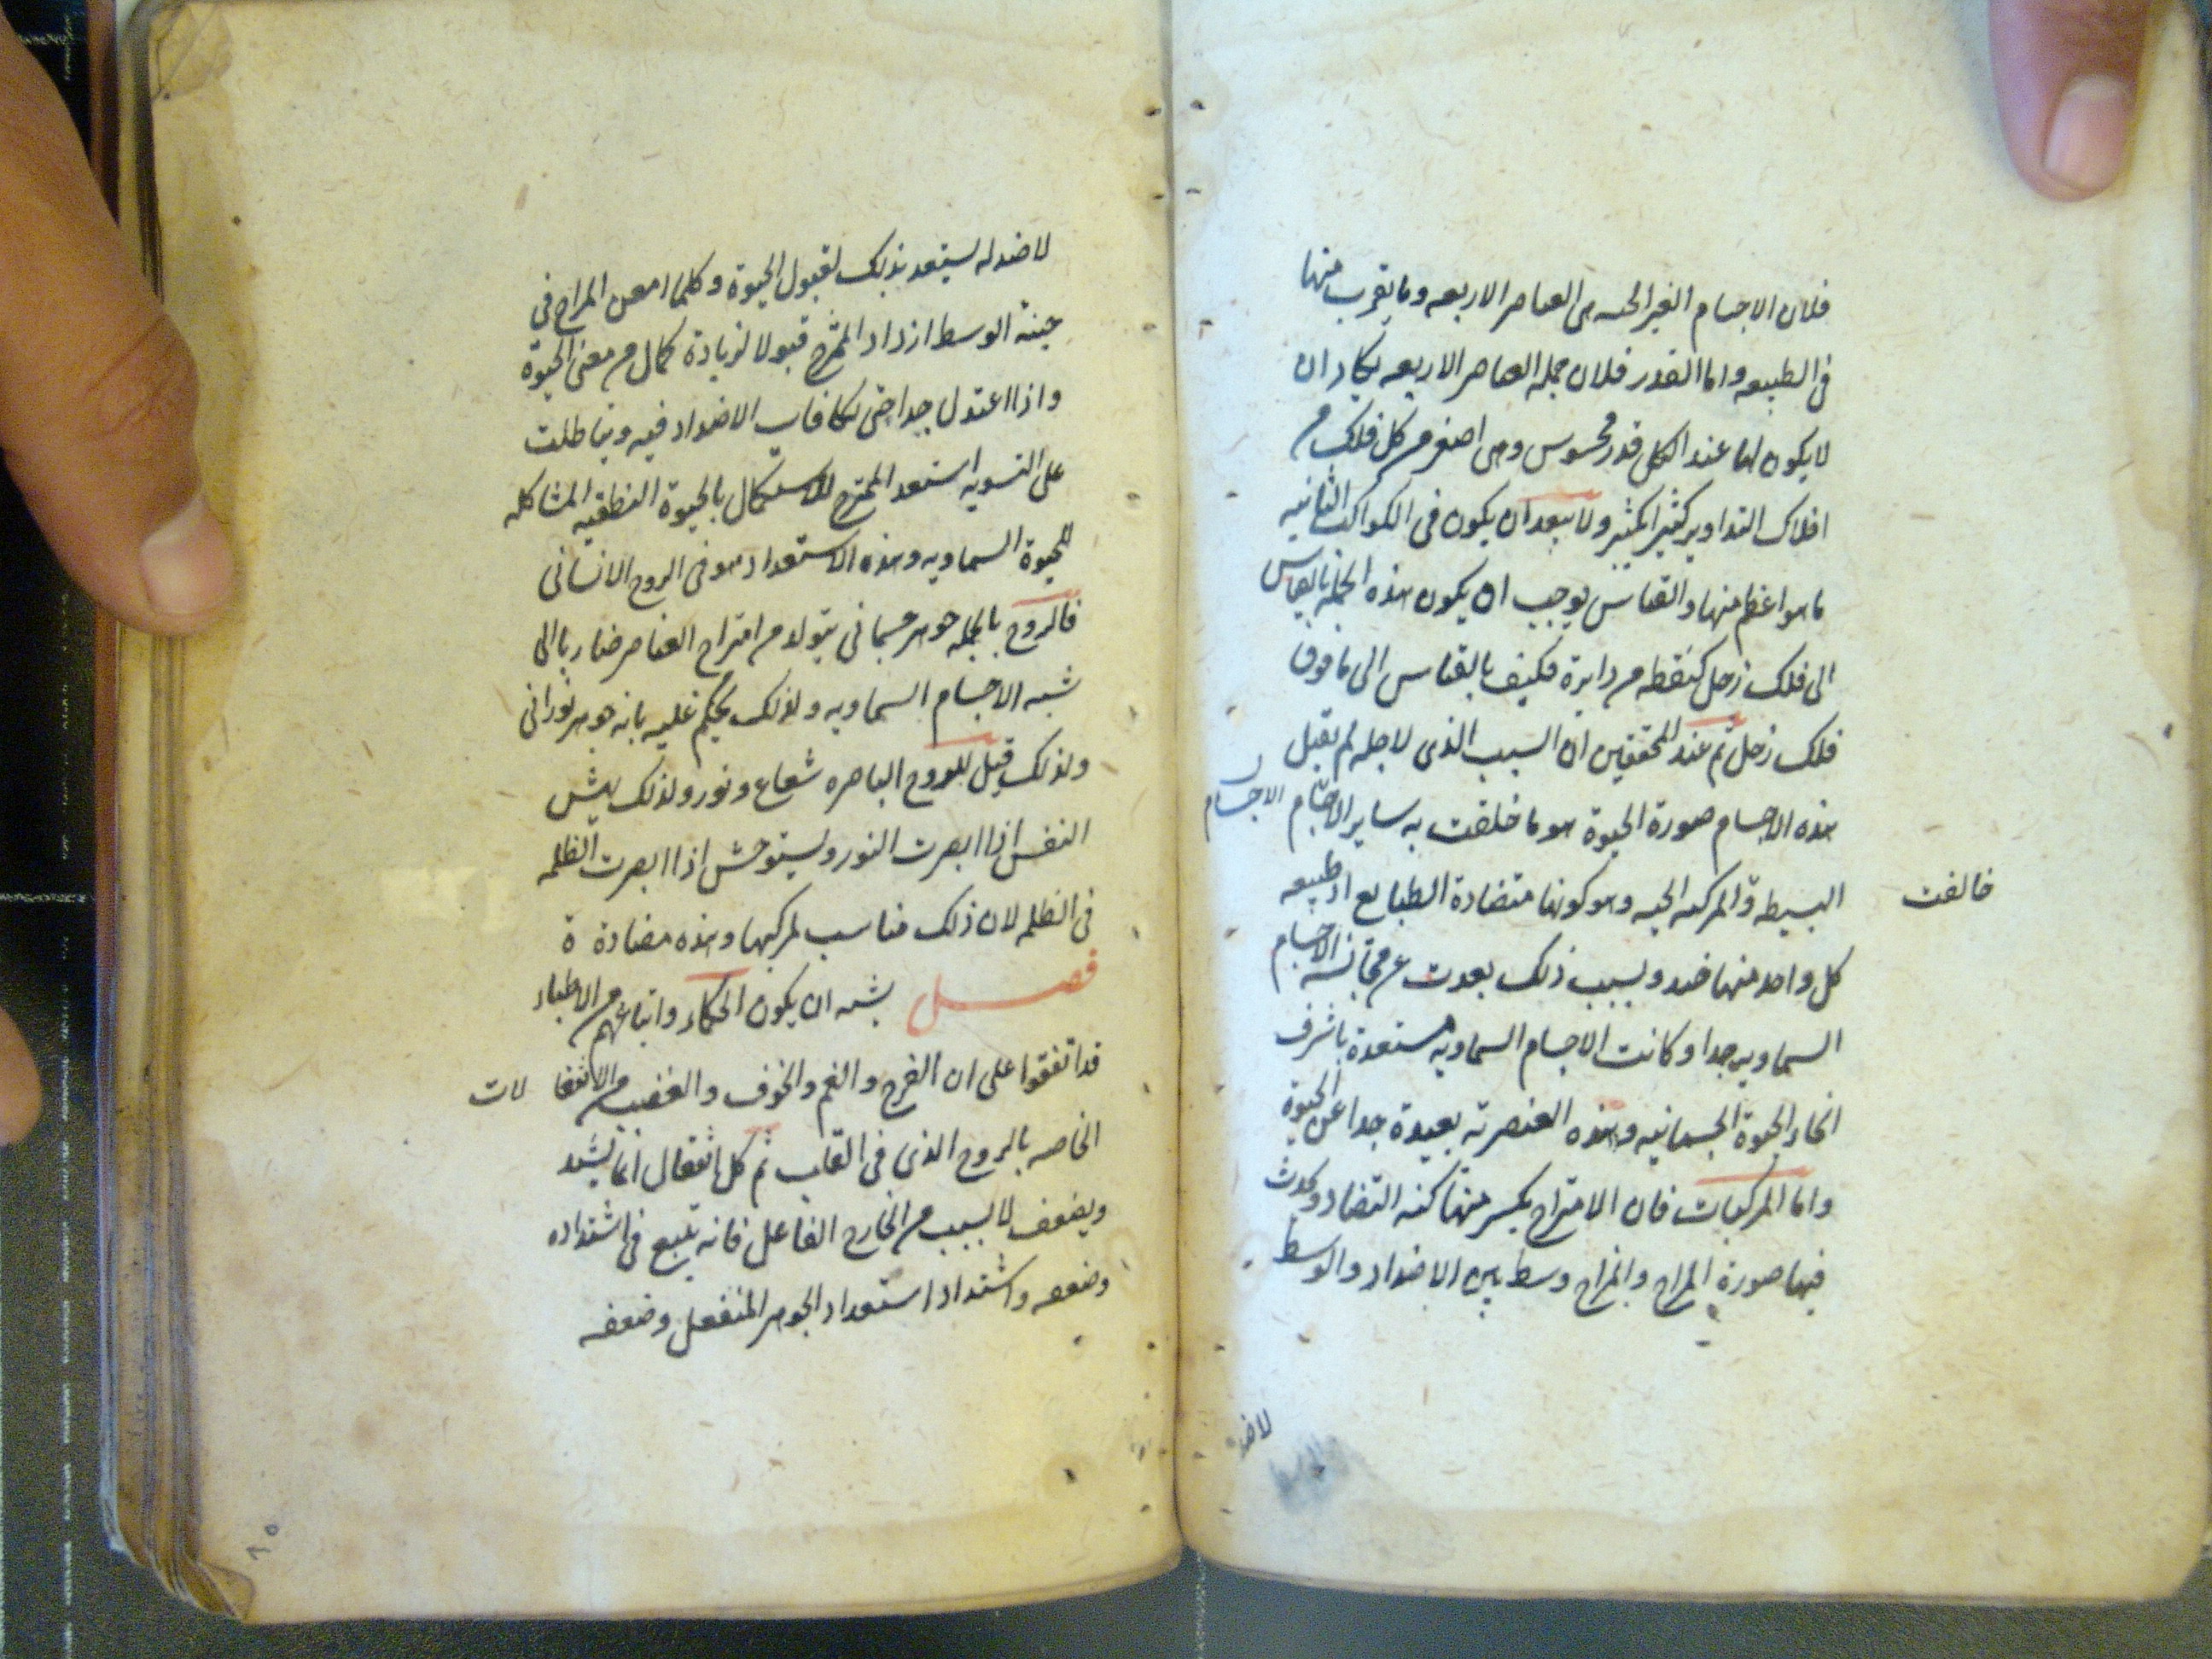 فلان الاجسام الغير الحيه هى العناصر الاربعه وما يقرب منها
فى الطبيعه واما القدر فلان جمله العناصر الاربعه يكاد ان
لا يكون لها عند الكل قدر محسوس وهى اصغر من كل فلك من
افلاك التداوير كثيرا بكثير ولا يبعد ان يكون فى الكواكب الثانيه
ما هو اعظم منها والقياس يوجب ان يكون هذه الجمله بالقياس
الى فلك زحل كنقطه من دايرة فكيف بالقياس الى ما فوق
فلك زحل ثم عند المحققين ان السبب الذى لاجله لم يقبل
هذه الاجسام صورة الحيوة هو ما خلقت به ساير الاجسام
الاجسام
البسيطه والمركبه الحيه وهو كونها متضادة الطبايع اذ طبيعه
خالفت
كل واحد منها ضد وبسبب ذلك بعدت عن مجانسه الاجسام
السماويه جدا وكانت الاجسام السماويه مستعدة باشرف
انحاء الحيوة الجسمانيه وهذه العنصريه بعيدة جدا عن الحيوة
واما المركبات فان الامتزاج يكسر منها كنه التضاد ويحدث
فيها صورة المزاج والمزاج وسط بين الاضداد والوسط
لا ضد
لا ضد له يستعد بذلك لقبول الحيوة وكلما امعن المزاج فى
جنبة الوسط ازداد الممتزج قبولا لزيادة كمال من معنى الحيوة
واذا اعتدل جدا حتى تكافات الاضداد فيه وتباطلت
على التسويه استعد الممتزج للاستكمال بالحيوة النطقيه المشاكله
للحيوة السماويه وهذه الاستعداد هو فى الروح الانسانى
فالروح بالجمله جوهر جسمانى يتولد من امتزاج العناصر ضاربا الى
شبه الاجسام السماويه ولذلك يحكم عليه بانه جوهر نورانى
ولذلك قيل للروح الباصره شعاع ونور ولذلك يهش
النفس اذا ابصرت النور ويستوحش اذا ابصرت الظلمه
فى الظلمه لان ذلك مناسب لمركبها وهذه مضادة ة
فصل يشبه ان يكون الحكماء واتباعهم من الاطباء
قد اتفقوا على ان الفرح والغم والخوف والغضب من الانفعالات
الخاصه بالروح الذى فى القلب ثم كل انفعال انما يشتد
ويضعف لا بسبب من الخارج الفاعل فانه يتبع فى اشتداده
وضعفه واشتداد استعداد الجوهر المنفعل وضعفه